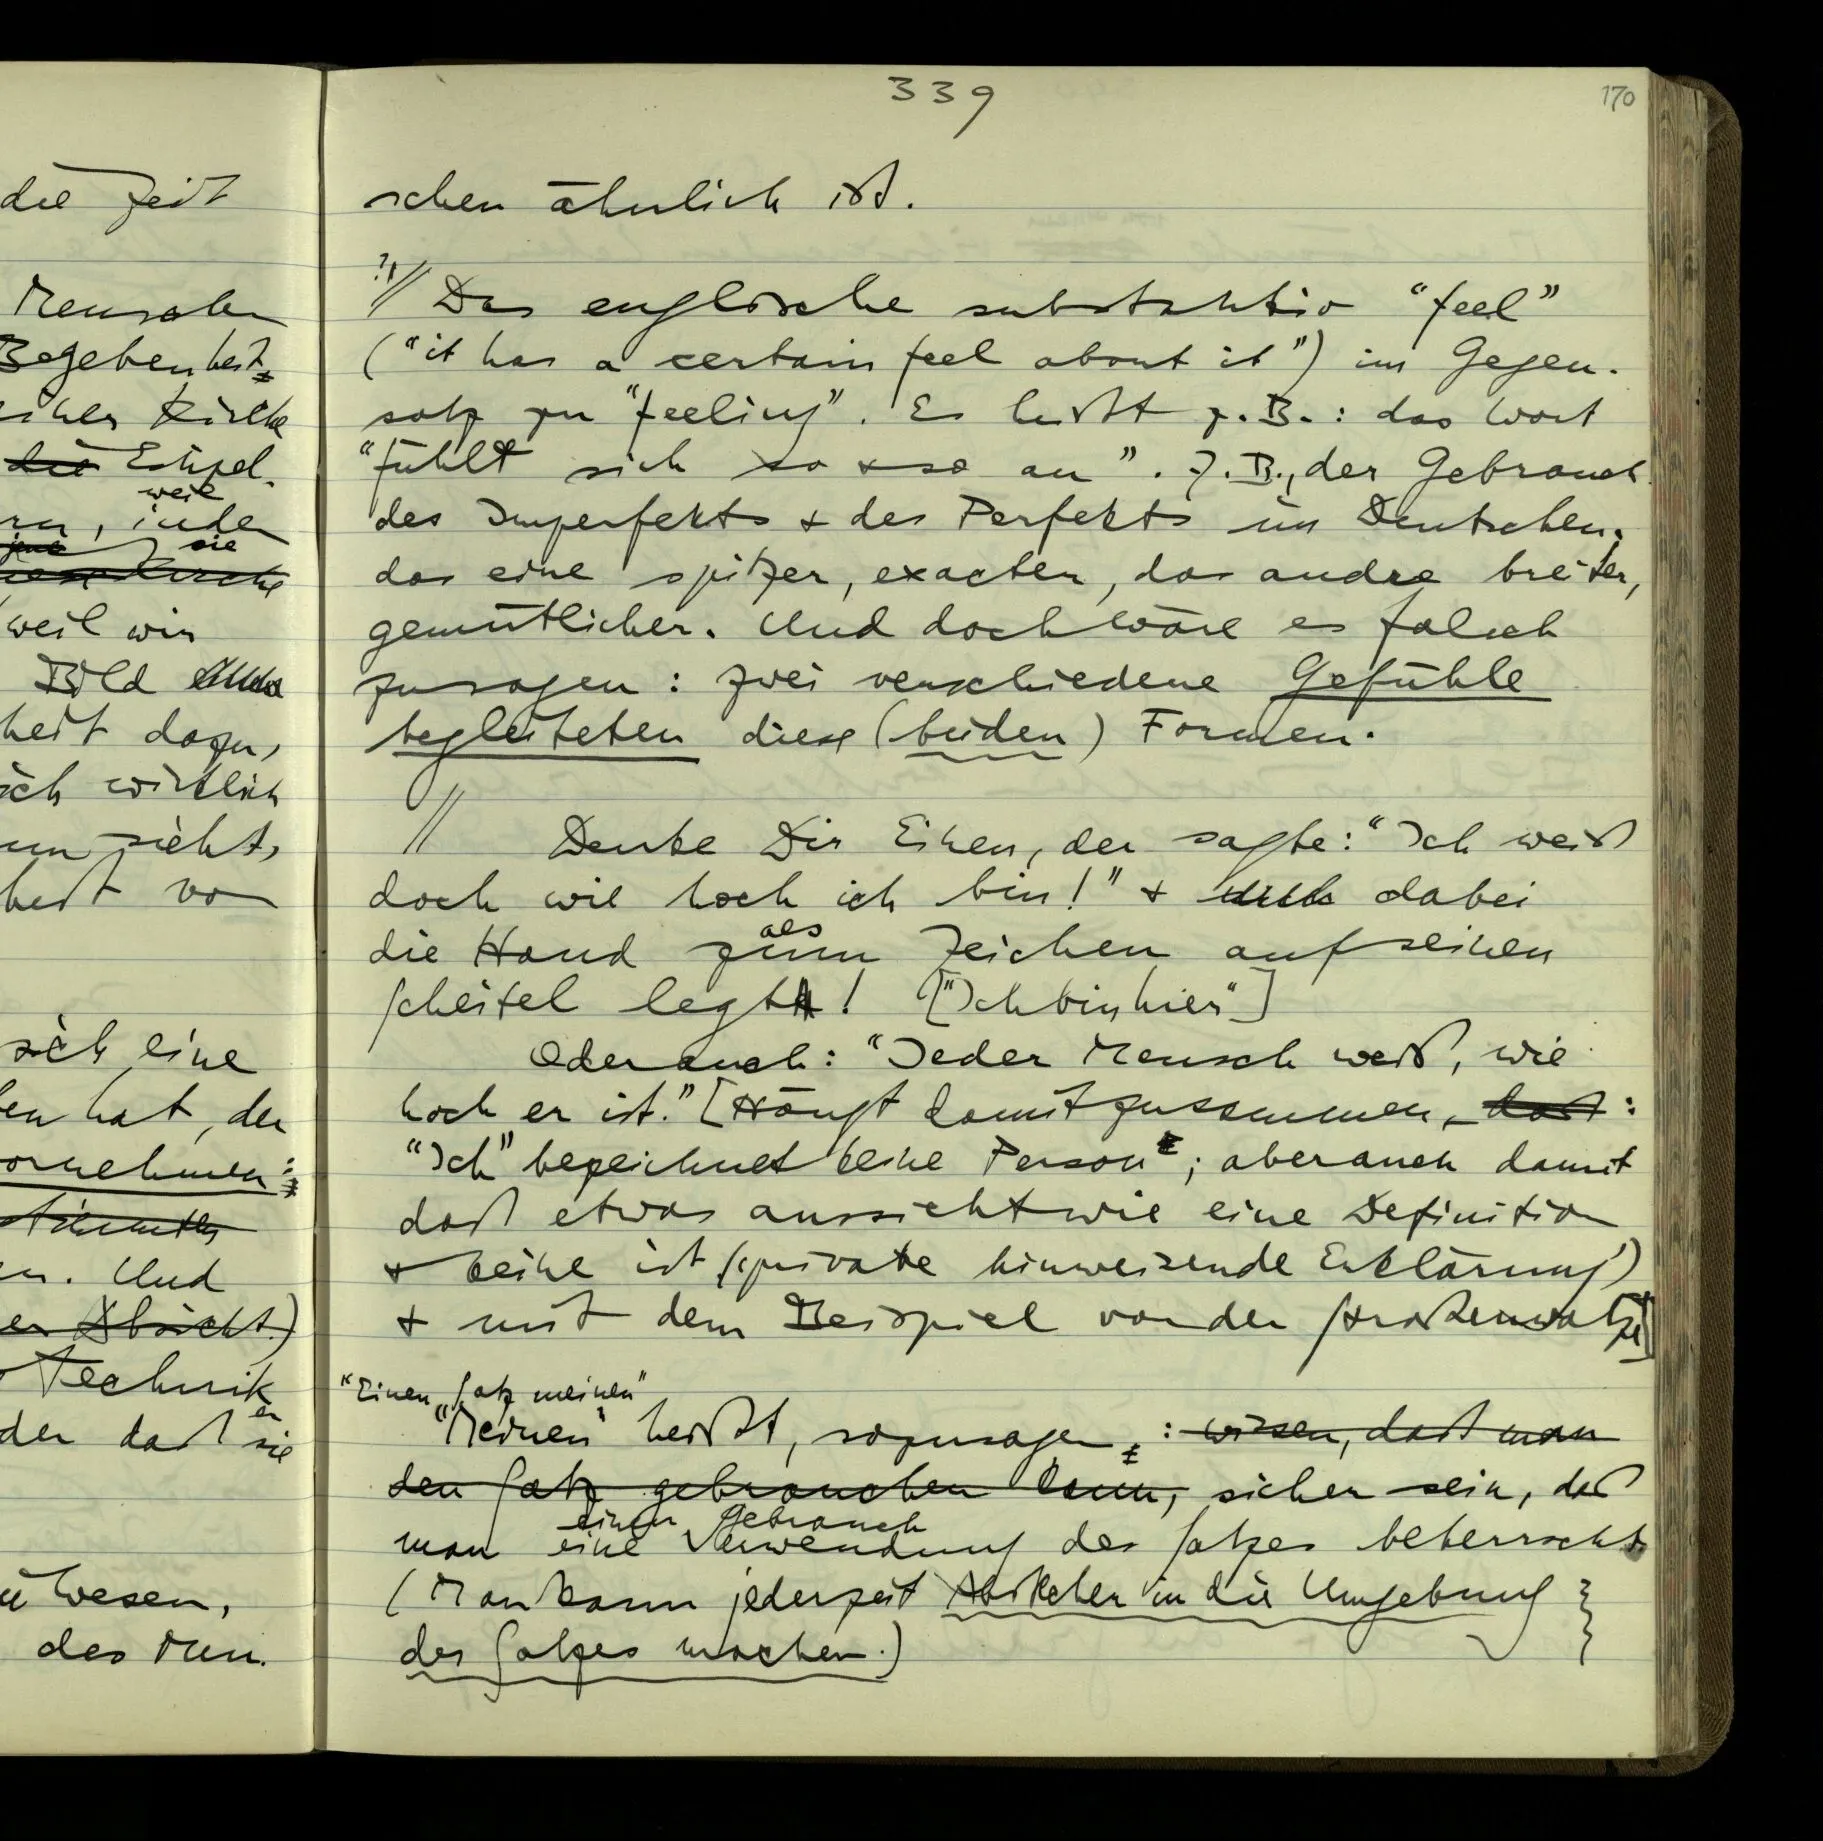 die Zeit
Menschen
Begebenheit
Kirche
die Empel-
weil
jene sie
weil wir
Bild
heit dazu,
ich wirklich
sieht,
heit von
sich eine
en hat, der
ornehmen:
n. Und
er Absicht.)
Technik
er
der daß sie
Wesen,
des Men-
339
170
schen ähnlich ist.
?// Das englische substantiv “feel”
(“it has a certain feel about it”) im Gegen-
satz zu “feeling”. Es heißt z.B.: das Wort
“fühlt sich so & so an”. Z.B., der Gebrauch
des Imperfekts & des Perfekts im Deutschen.
das eine spitzer, exacter, das andre breiter,
gemütlicher. Und doch wäre es falsch
zu sagen: zwei verschiedene Gefühle
begleiteten diese (beiden) Formen.
// Denke Dir Einen, der sagte: “Ich weiß
doch wie hoch ich bin!” & dabei
als
die Hand zum Zeichen auf seinen
Scheitel legt! [“Ich bin hier”]
Oder auch: “Jeder Mensch weiß, wie
hoch er ist.” [Hängt damit zusammen, daß:
“Ich” bezeichnet keine Person; aber auch damit
daß etwas aussieht wie eine Definition
& keine ist (private hinweisende Erklärung)
& mit dem Beispiel von der Straßenwalze]
“Einen Satz meinen”
“Meinen” heißt, sozusagen: wissen, daß man
den Satz gebrauchen kann, sicher sein, daß
einen Gebrauch
man eine Verwendung des Satzes beherrscht
(Man kann jederzeit Abstecher in die Umgebung
des Satzes machen.)